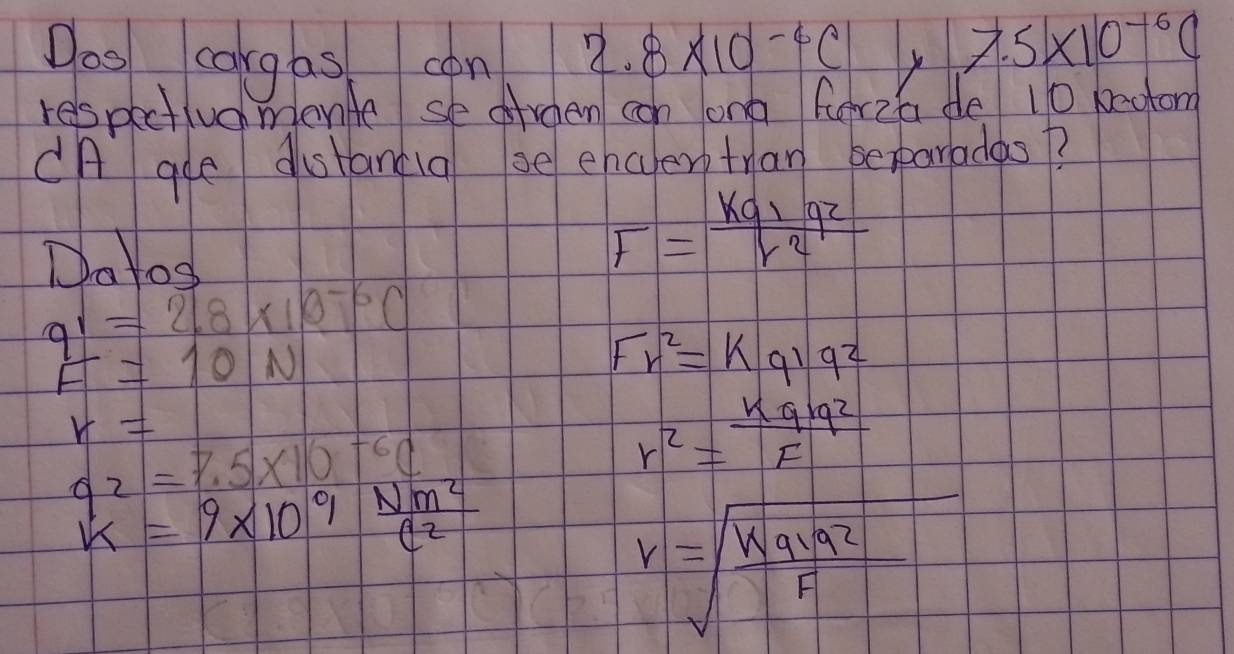 Dos cargas con 2.8×10⁻⁶C y 7.5×10⁻⁶C
respectivamente se atraen con una fuerza de 10
¿A que distancia se encuentran separadas?
Datos
q1 = 2.8×10⁻⁶C
F = 10 N
r =
q2 = 7.5×10⁻⁶C
K = 9×10⁹ Nm²/C²
F = Kq1q2/r²
Fr² = Kq1q2
r² = Kq1q2/F
r = √(Kq1q2/F)